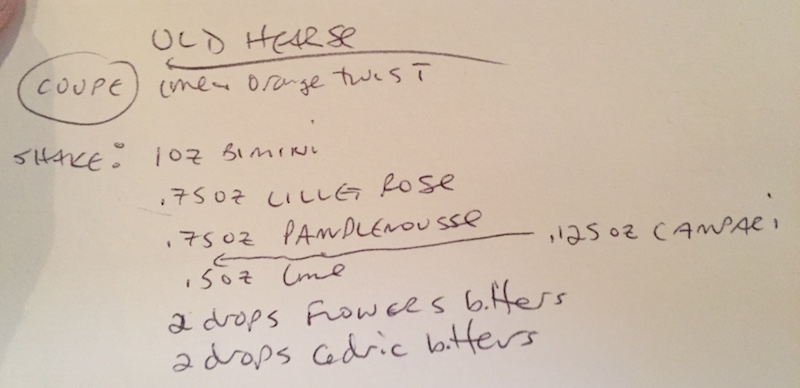 OLD HEARSE
COUPE orange twist
SHAKE: 1oz BIMINI
.75oz LILLET ROSE
.75oz PAMPLEMOUSSE .125oz CAMPARi
.5oz Lime
2 drops FLOWERS bitters
2 drops Cedric bitters